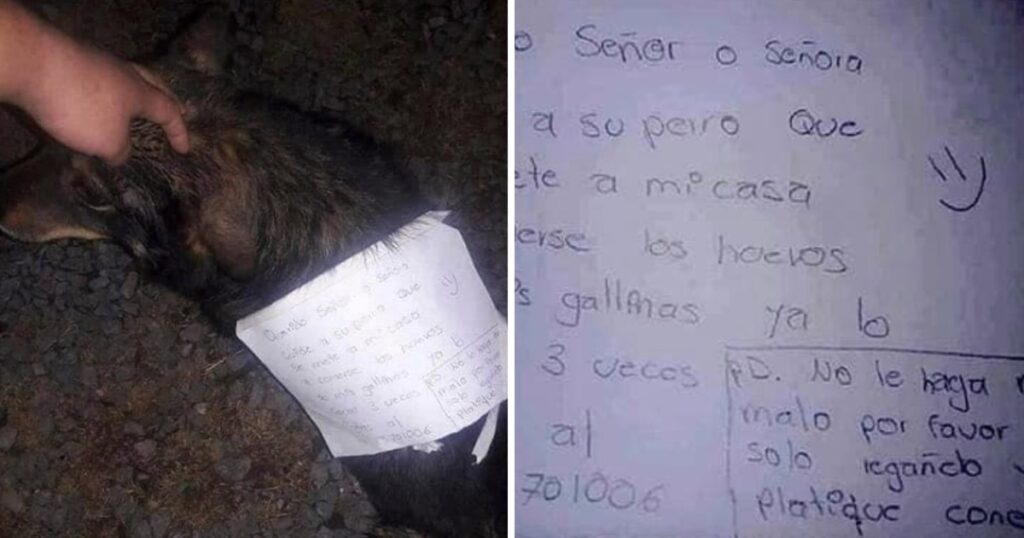 Señor o Señora
a su perro que
se mete a mi casa
a comerse los hoevos
de mis gallinas ya b
3 veces
al
701006
PD. No le haga
malo por favor
solo
platique
o Señor o Señora
a su perro Que
ete a mi casa
erse los hoevos
s gallinas ya b
3 veces
al
701006
PD. No le haga
malo por favor
solo regañelo
platique cone